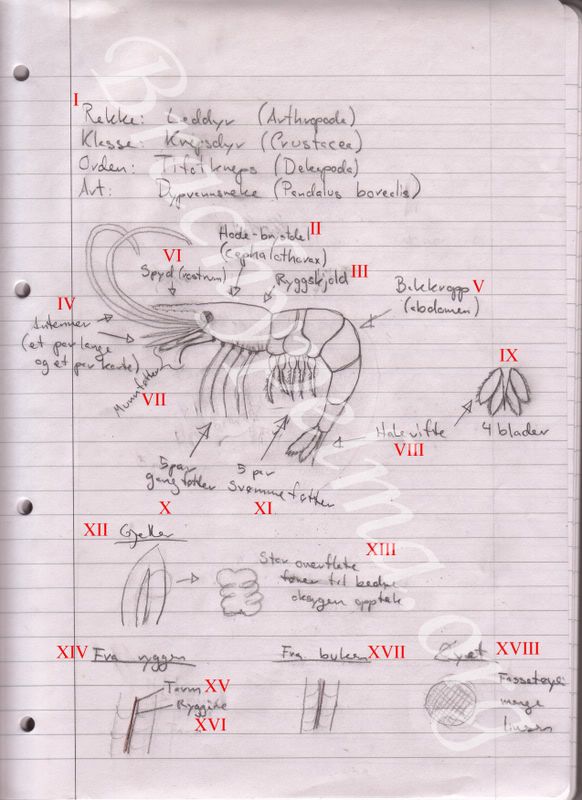 I
Rekke: Leddyr (Arthropoda)
Klasse: Krepsdyr (Crustacea)
Orden: Tifotkreps (Dekapoda)
Art: Dypvannsreke (Pandalus borealis)
Hode-brystdel II
(Cephalothorax)
VI
Spyd (rostrum)
Ryggskjold III
Bakkropp V
(abdomen)
IV
Antenner
(et par lange
og et par korte)
Munnføtter
VII
IX
4 blader
Halevifte
VIII
5 par
gangføtter
X
5 par
svømmeføtter
XI
XII Gjeller
XIII
Stor overflate
fører til bedre
oksygen opptak
XIV Fra ryggen
Tarm XV
Ryggåre
XVI
Fra buken XVII
Øyet XVIII
Fassetøye
mange
linser